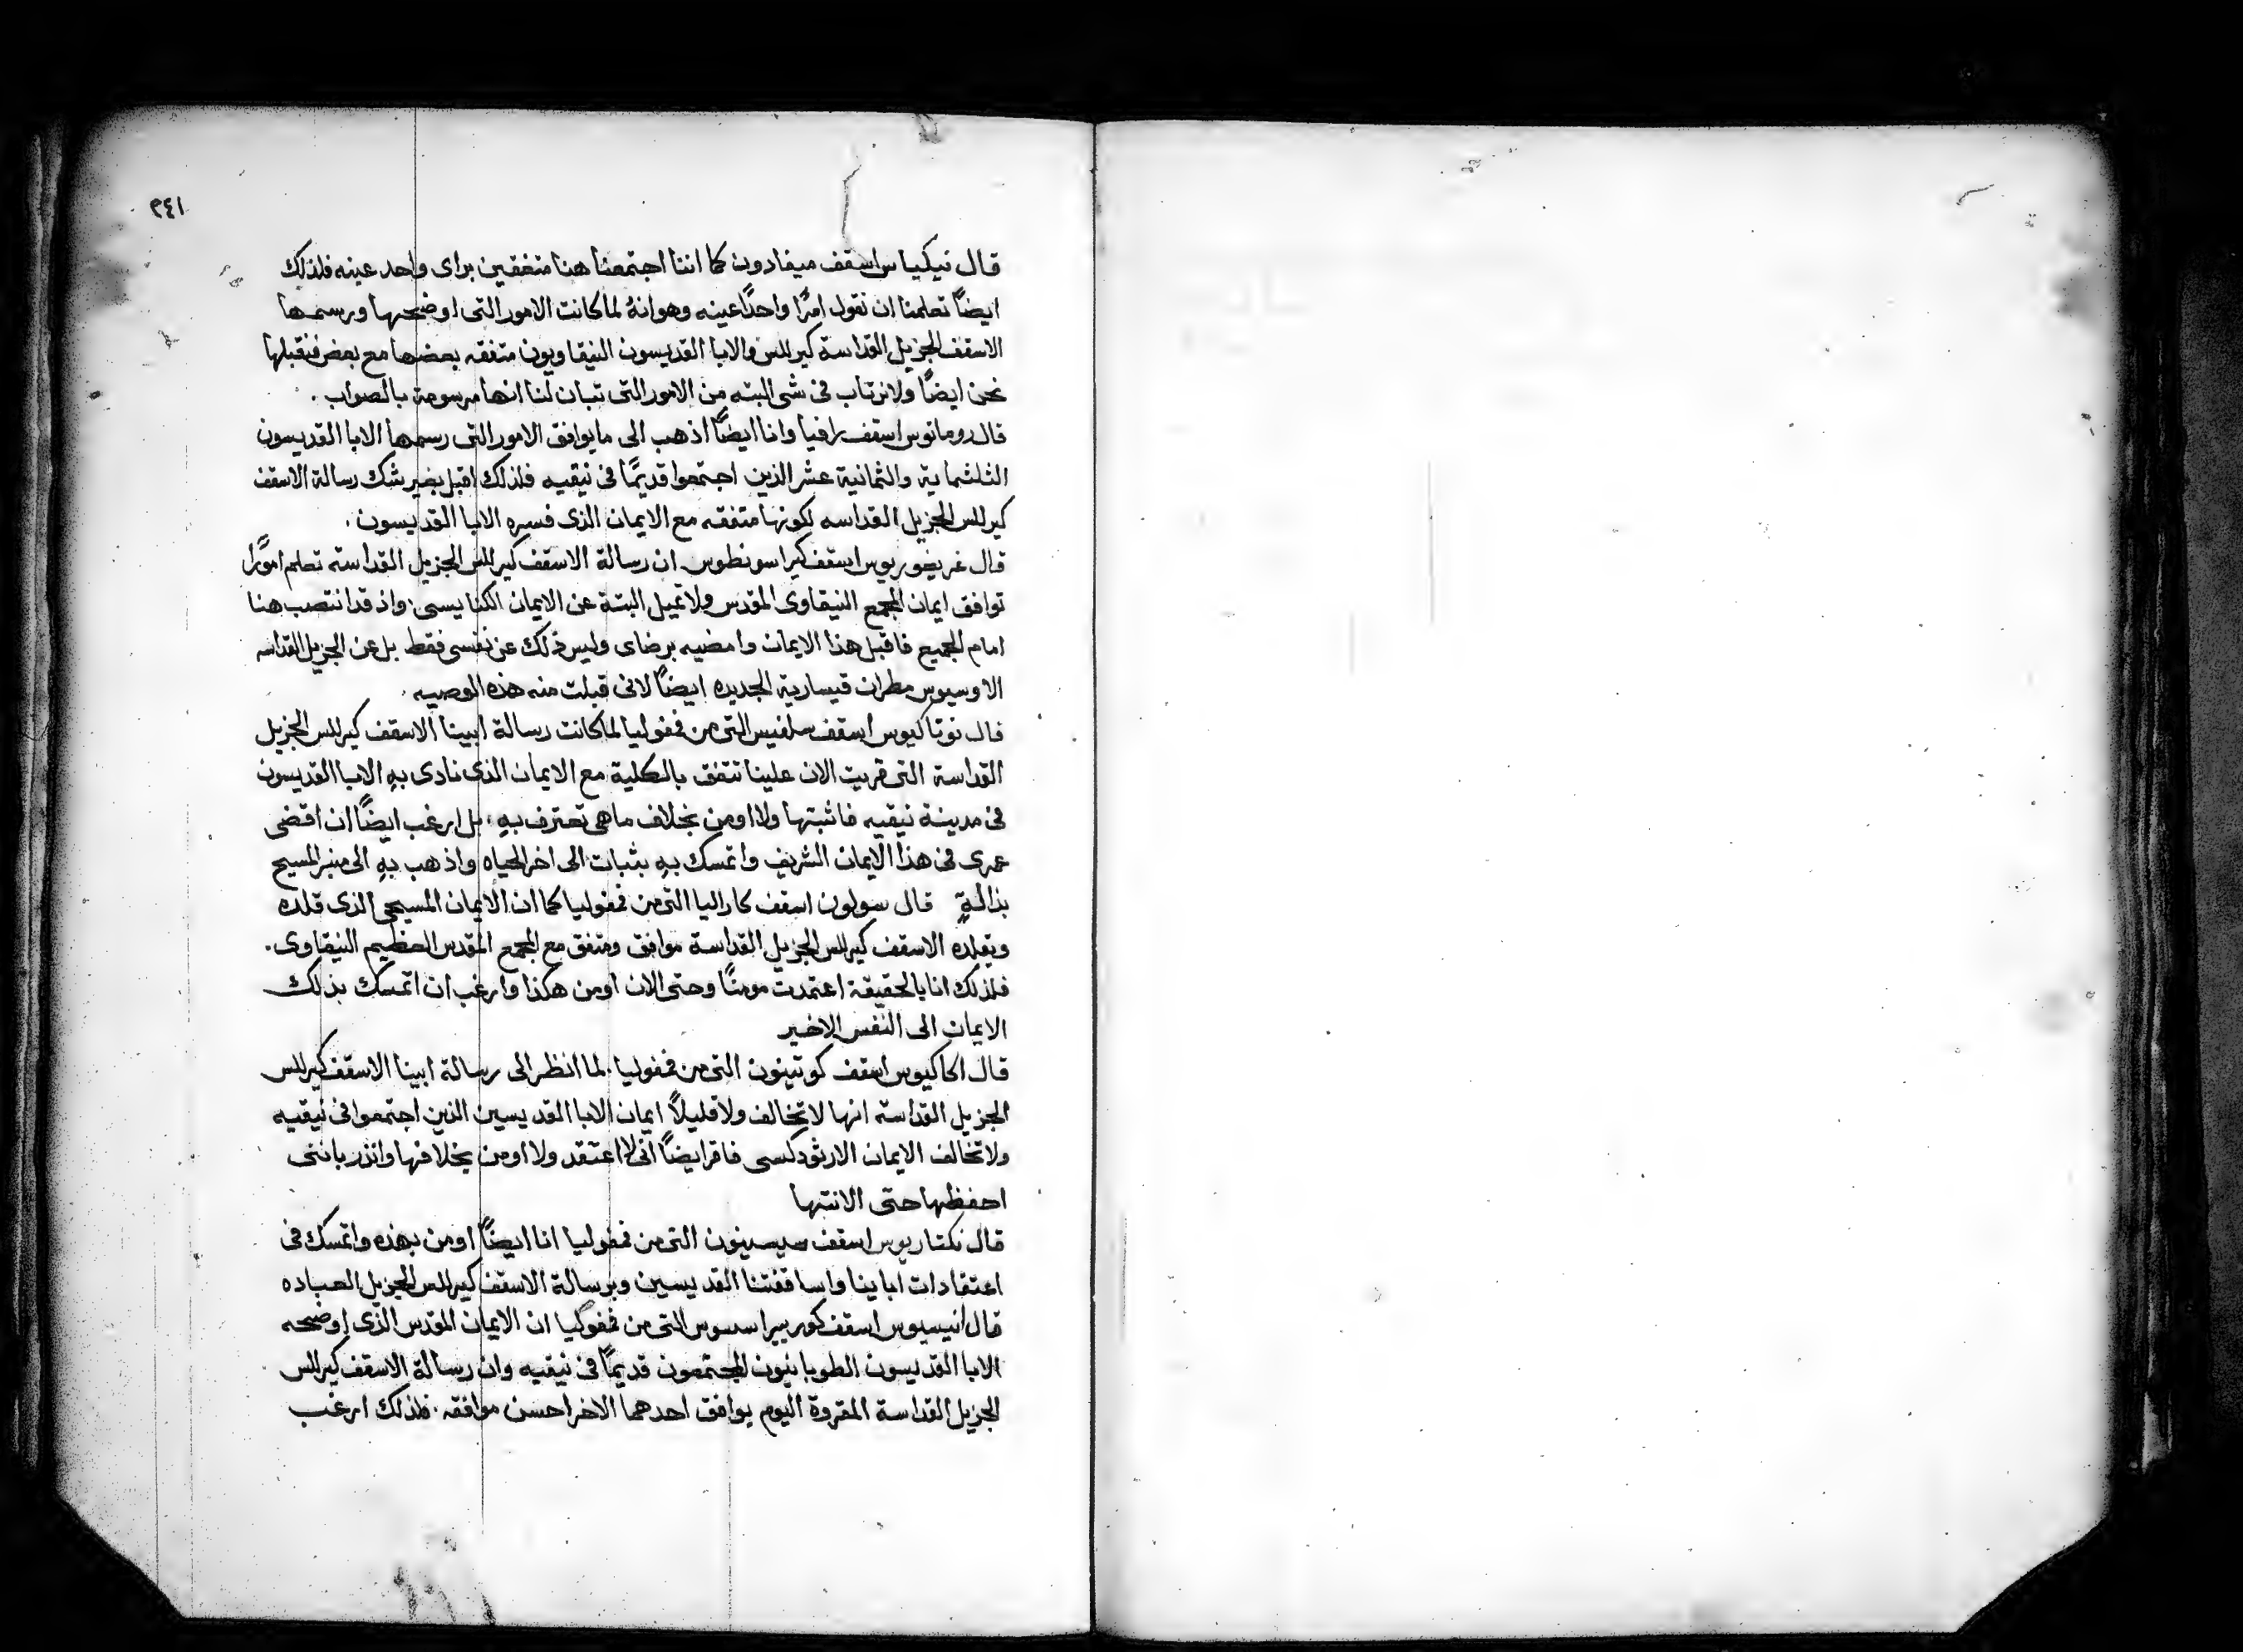 ٣٤١
قال نيكياس اسقف ميغادون كما اننا اجتمعنا هنا متفقين براى واحد عينه فلذلك
ايضاً تعلمنا ان نقول امرًا واحدًا عينه وهو انهُ لما كانت الامور التى اوضحها ورسمها
الاسقف الجزيل القداسة كيرللس والابا القديسون النيقاويون متفقه بعضها مع بعض فنقبلها
نحن ايضاً ولا نرتاب فى شى البته من الامور التى تبان لنا انها مرسومة بالصواب .
قال رومانوس اسقف رافيا وانا ايضاً اذهب الى ما يوافق الامور التى رسمها الابا القديسون
الثلثماية والثمانية عشر الذين اجتمعوا قديمًا فى نيقيه فلذلك اقبل بغير شك رسالة الاسقف
كيرللس الجزيل القداسه لكونها متفقه مع الايمان الذى فسره الابا القديسون .
قال غريغوريوس اسقف كيراسونطوس ان رسالة الاسقف كيرللس الجزيل القداسة تعلم امورًا
توافق ايمان المجمع النيقاوى المقدس ولا تميل البتة عن الايمان الكنايسى . واذ قد انتصب هنا
امام الجميع فاقبل هذا الايمان وامضيه برضاى وليس ذلك عن نفسى فقط بل عن الجزيل القداسه
الاوسيوس مطران قيسارية الجديده ايضاً لانى قبلت منه هذه الوصيه .
قال نوتاكيوس اسقف سلفيس التى من فمفوليا لما كانت رسالة ابينا الاسقف كيرللس الجزيل
القداسة التى قريت الان علينا تتفق بالكلية مع الايمان الذى نادى بهِ الابا القديسون
فى مدينة نيقيه فاثبتها ولا اومن بخلاف ما هى تعترف بهِ . بل ارغب ايضاً ان اقضى
عمرى فى هذا الايمان الشريف واتمسك بهِ بثبات الى اخر الحياه واذهب بهِ الى منبر المسيح
بدالةٍ قال سولون اسقف كاراليا التى من فمفوليا كما ان الايمان المسيحى الذى قلده
ويقلده الاسقف كيرللس الجزيل القداسة موافق ومتفق مع المجمع المقدس العظيم النيقاوى .
فلذلك انا بالحقيقة اعتمدت مومنًا وحتى الان اومن هكذا وارغب ان اتمسك بذلك
الايمان الى النفس الاخير
قال اكاكيوس اسقف كوتينون التى من فمفوليا . لما انظر الى رسالة ابينا الاسقف كيرللس
الجزيل القداسة انها لا تخالف ولا قليلاً ايمان الابا القديسين الذين اجتمعوا فى نيقيه
ولا تخالف الايمان الارثودكسى فاقر ايضاً انى لا اعتقد ولا اومن بخلافها وانذر باننى
احفظها حتى الانتها
قال نكتاريوس اسقف سيسينون التى من فمفوليا انا ايضاً اومن بهذه واتمسك فى
اعتقادات اباينا واساقفتنا القديسين وبرسالة الاسقف كيرللس الجزيل العباده
قال انيسيوس اسقف كوربيراسسوس التى من فمفوليا ان الايمان المقدس الذى اوضحه
الابا القديسون الطوبانيون المجتمعون قديمًا فى نيقيه وان رسالة الاسقف كيرللس
الجزيل القداسة المقروة اليوم يوافق احدهما الاخر احسن موافقه . فلذلك ارغب